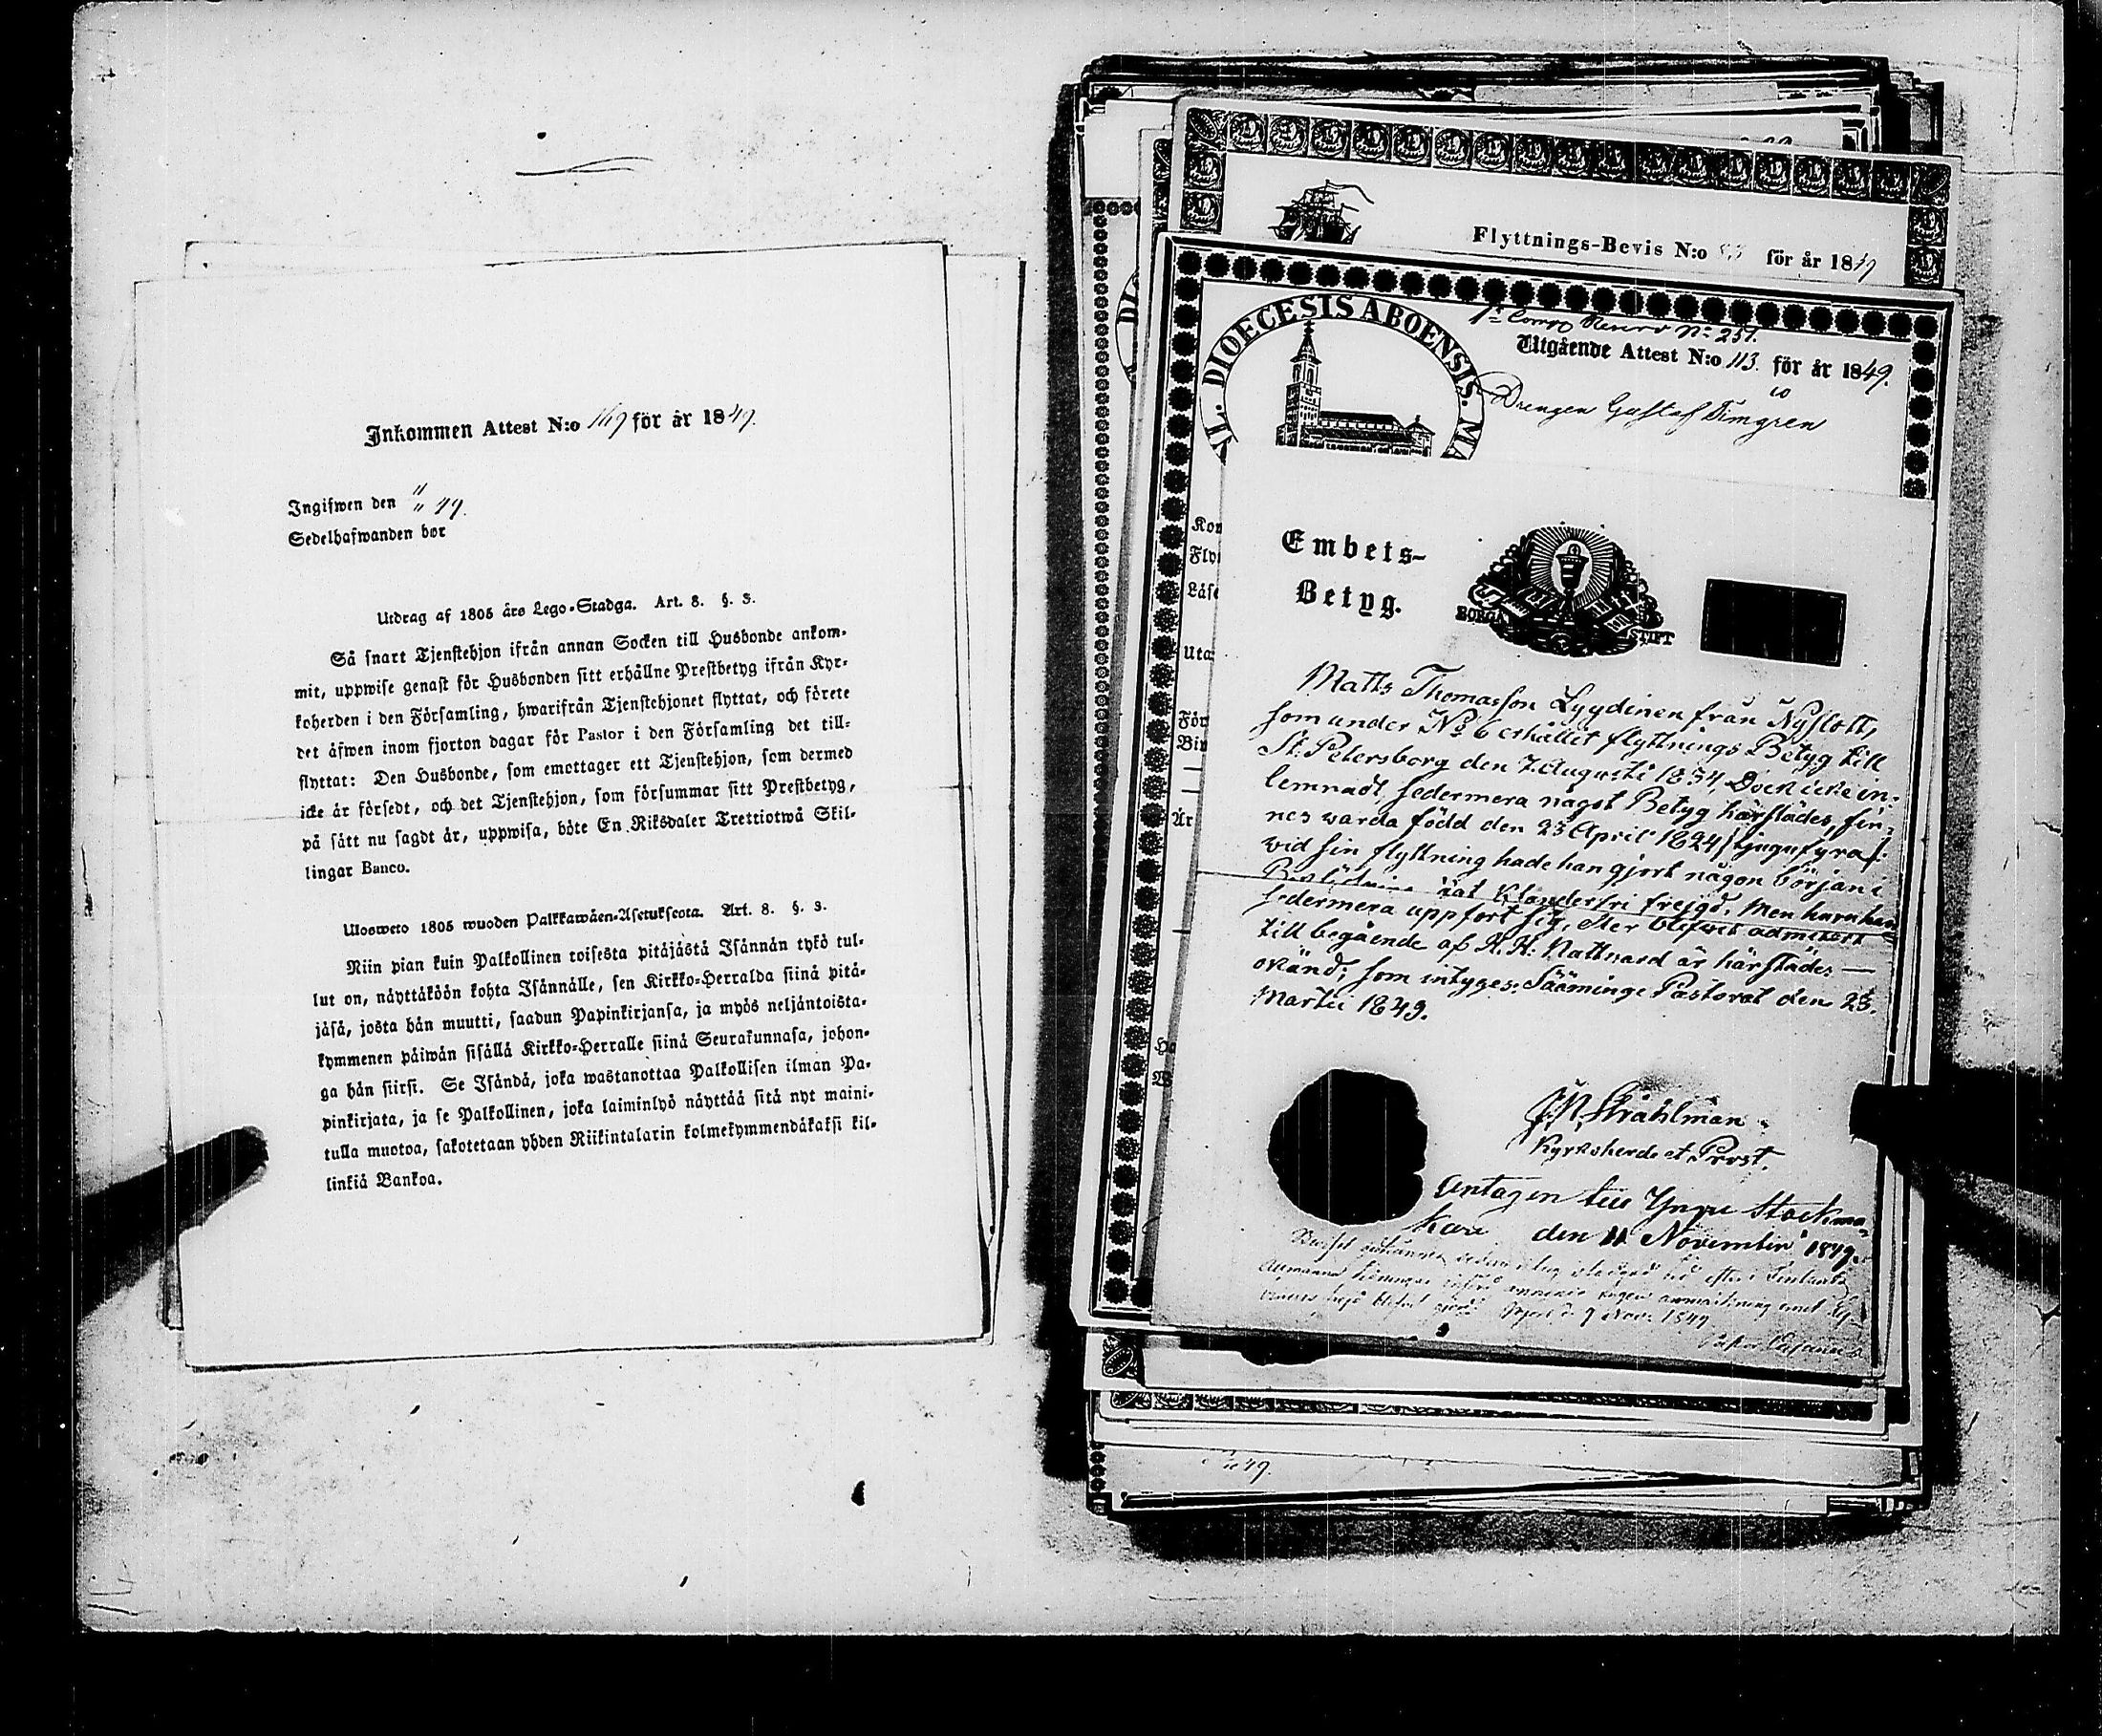 Inkommen Attest N:o 169 för år 1849.
Ingifwen den 11/11 49.
Sedelhafwanden bor
Utdrag af 1805 års Lego-Stadga. Art. 8. §. 3.
Så snart Tjenstehjon ifrån annan Socken till Husbonde ankom-
mit, uppwise genast för Husbonden sitt erhållne Prestbetyg ifrån Kyr-
koherden i den Församling, hwarifrån Tjenstehjonet flyttat, och förete
det äfwen inom fjorton dagar för Pastor i den Församling det till-
flyttat: Den Husbonde, som emottager ett Tjenstehjon, som dermed
icke är försedt, och det Tjenstehjon, som försummar sitt Prestbetyg,
på sätt nu sagdt är, uppwisa, böte En Riksdaler Trettiotwå Skil-
lingar Banco.
Ulosweto 1805 wuoden Palkkawäen-Asetuksesta. Art. 8. §. 3.
Niin pian kuin Palkollinen toisesta pitäjästä Isännän tykö tul-
lut on, näyttäköön kohta Isännälle, sen Kirkko-Herralda siinä pitä-
jäsä, josta hän muutti, saadun Papinkirjansa, ja myös neljäntoista-
kymmenen päiwän sisällä Kirkko-Herralle siinä Seurakunnasa, johon-
ga hän siirsi. Se Isändä, joka wastanottaa Palkollisen ilman Pa-
pinkirjata, ja se Palkollinen, joka laiminlyö näyttää sitä nyt maini-
tulla muotoa, sakotetaan yhden Riikintalarin kolmekymmendäkaksi kil-
linkiä Bankoa.
Flyttnings-Bevis N:o för år 1849
VL. DIOECESIS ABOENSIS. MA
1:a Corps N:o 251.
Utgående Attest N:o 113. för år 1849.
Drengen Gustaf Timgren
Kon
Fly
Läse
Uta
För
Bi
År
Embets-
Betyg.
BORGÅ STIFT
Matts Thomasson Lyydinen från Nyslott,
som under No 6 erhållit flyttnings Betyg till
St. Petersborg den 7. Augusti 1834, Dock icke in-
lemnadt, sedermera något Betyg härstädes, fin-
nes warda född den 23 April 1824 /:tjugufyra/:
wid sin flyttning hade han gjort någon början i
klanderfri frejgd. Men huru han
sedermera uppfört sig, eller blifwit admitterad
till begående af H. H. Nattward är härstädes —
okänd; som intyges. Sääminge Pastorat den 23.
Martii 1849.
J. N. Stråhlman
Kyrkoherde et Prost.
Antagen till Yngre Stockma-
kare den 11 November 1849.
1849